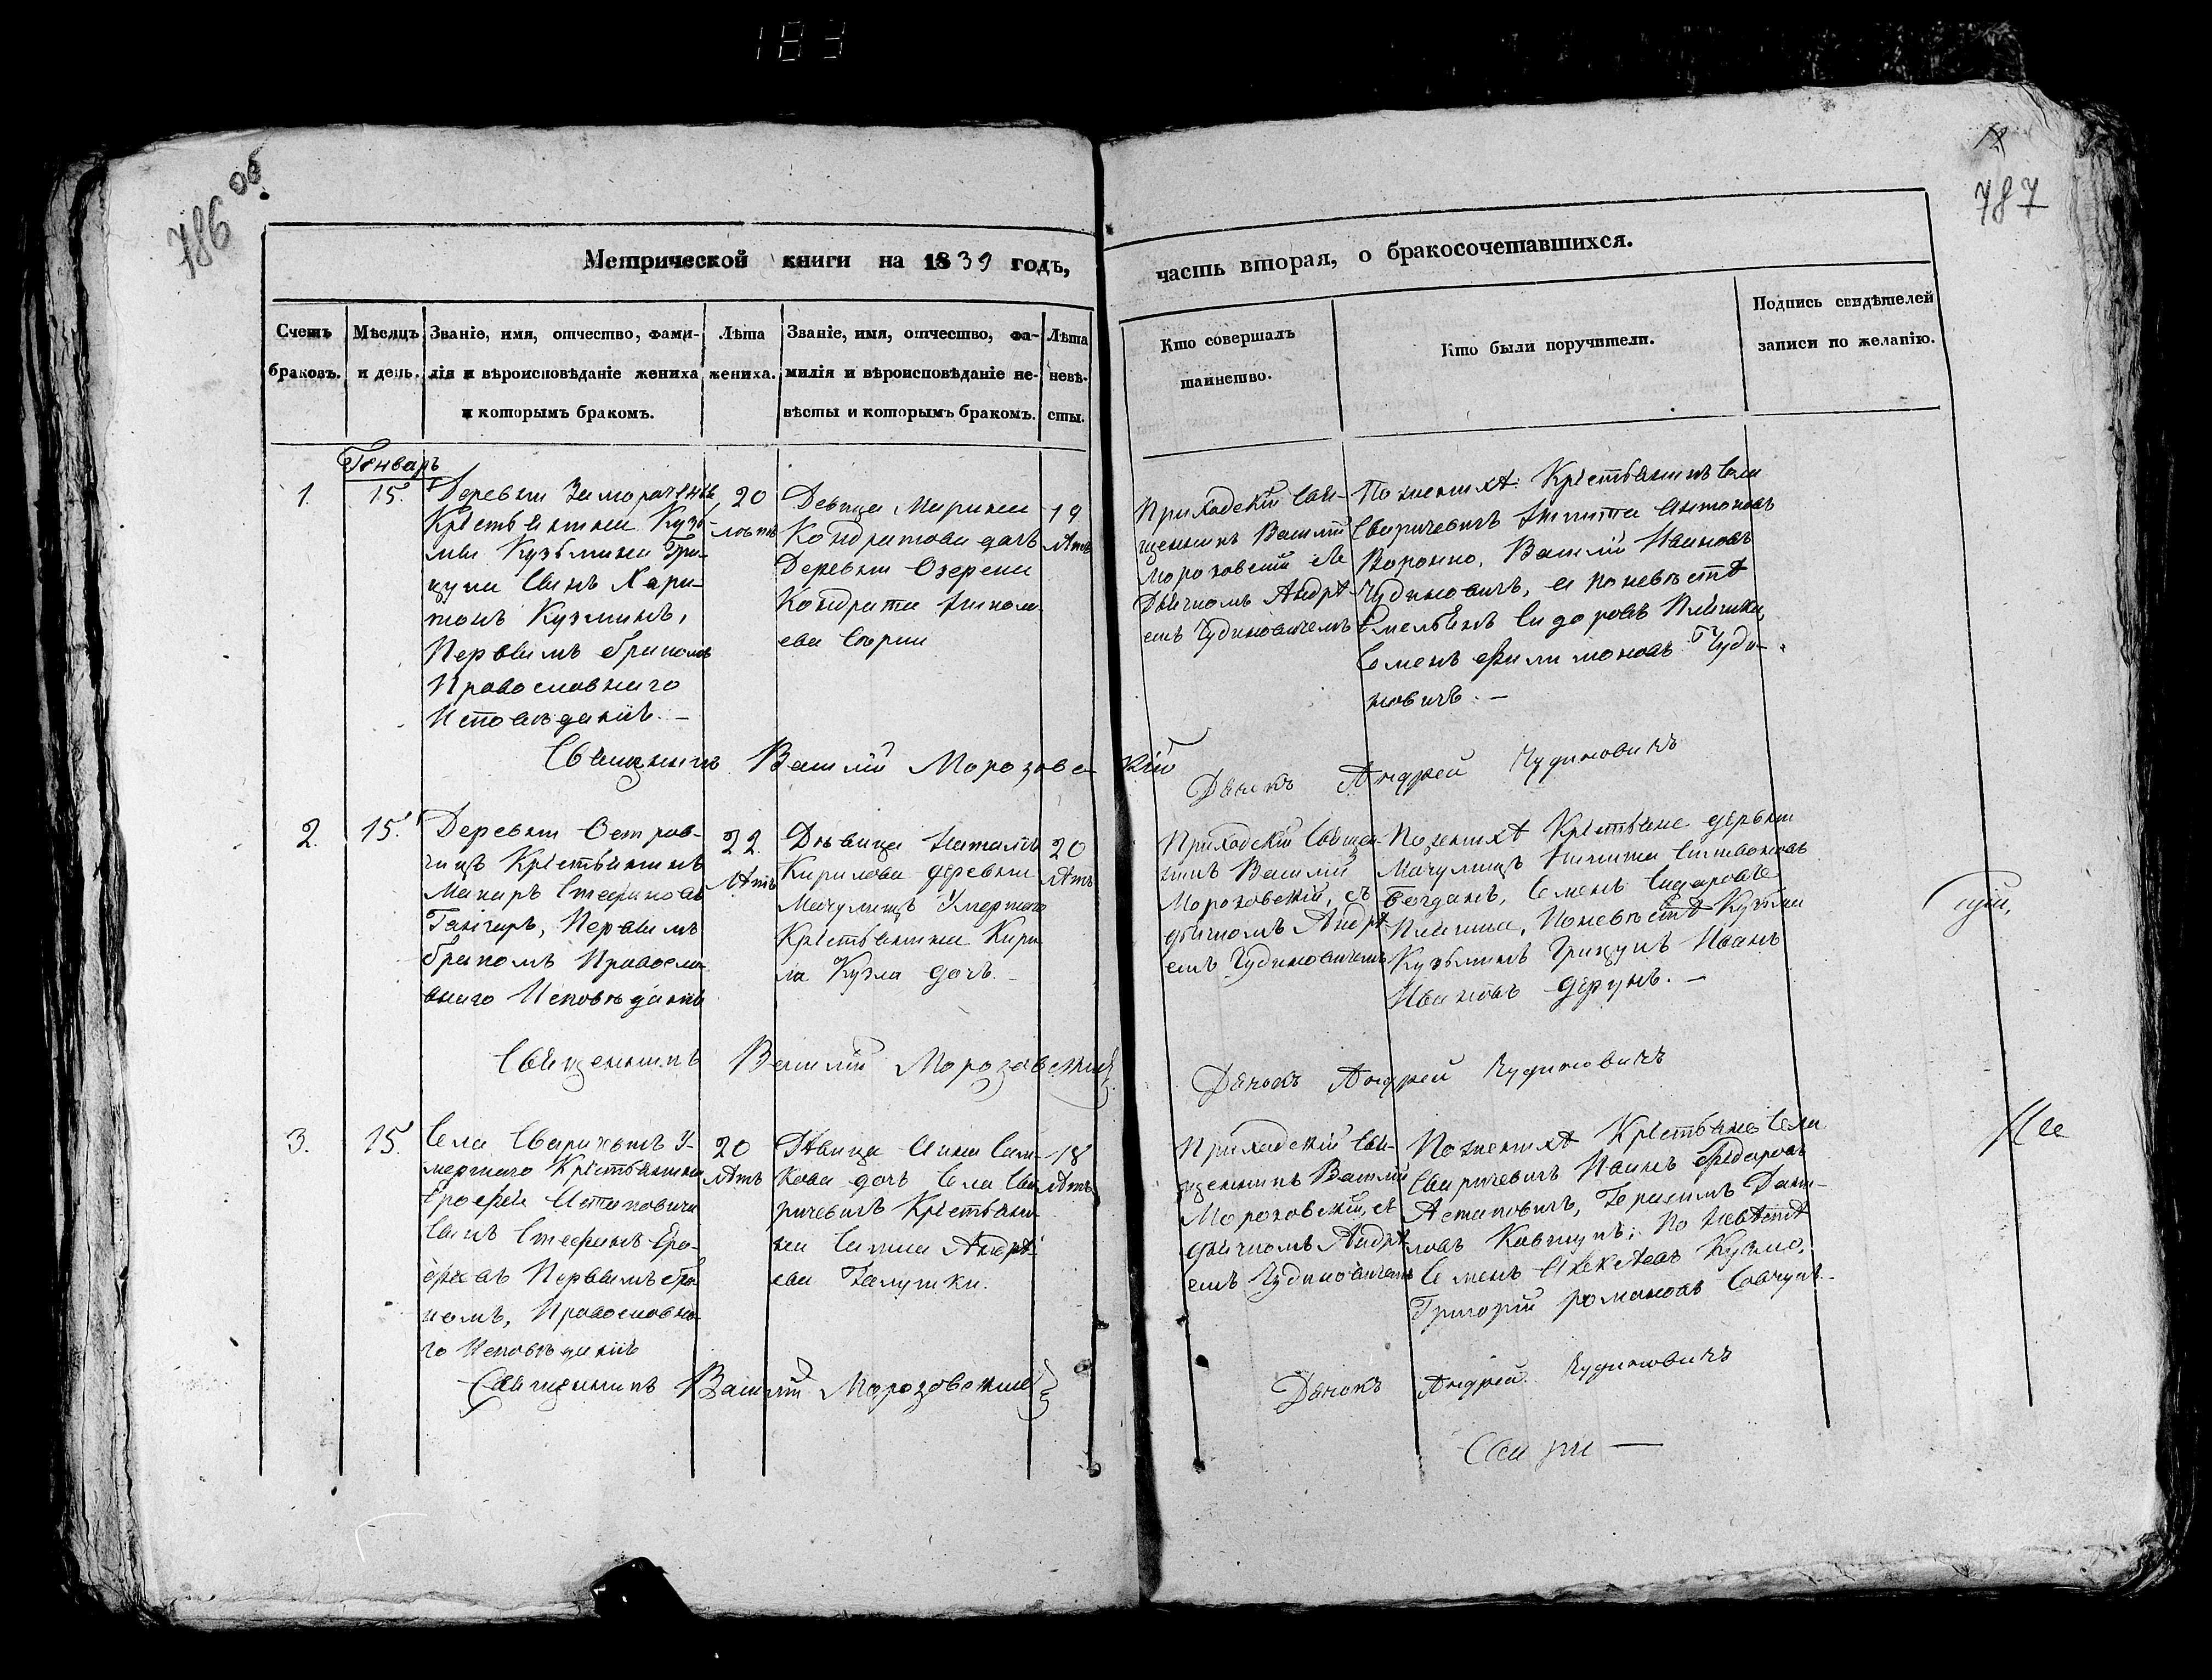 183
786 об.
787
Метрической книги на 1839 годъ,
часть вторая, о бракосочетавшихся.
Счетъ
браковъ.
Мѣсяцъ
и день.
Званіе, имя, отчество, фами-
лія и вѣроисповѣданіе жениха
и которымъ бракомъ.
Лѣта
жениха.
Званіе, имя, отчество, фа-
милія и вѣроисповѣданіе не-
вѣсты и которымъ бракомъ.
Лѣта
невѣ-
сты.
Кто совершалъ
таинство.
Кто были поручители.
Подпись свидѣтелей
записи по желанію.
Генварь
1.
15.
Деревни
Крестьянина Кузь-
мы Кузьмина Гри-
цука Сынъ Хари-
тонъ Кузминъ,
Первымъ бракомъ
Православнаго
Исповѣданія. —
20
лѣтъ
Девица Марина
Кондратова дочь
Деревни Озерска
Кондрата
ева
19
лѣтъ
Приходскій Свя-
щенникъ Василій
Морозовскій съ
Дьячкомъ Андрѣ-
емъ Чудиновичемъ
По женихѣ Крестьянинъ Села
Сваричевичъ Никита Антоновъ
Воронко, Василій Ивановъ
Чудиновичъ, а по невѣстѣ
Емельянъ Сидоровъ
Семенъ Филимоновъ Чуди-
новичъ. —
Священникъ Василій Морозовскій
Дьячокъ Андрей Чудиновичъ
2.
15.
Деревни Остров-
чицъ Крестьянинъ
Макаръ Стефановъ
Первымъ
бракомъ Правосла-
внаго Исповѣданія
22.
лѣтъ
Дѣвица Наталія
Кирилова деревни
Мачулищъ Умершаго
Крестьянина Кири-
ла Кузла дочь. —
20
лѣтъ
Приходскій Священ-
никъ Василій
Морозовскій, съ
дьячкомъ Андрѣ-
емъ Чудиновичемъ
По женихѣ Крестьяне деревни
Мачулищъ Никита Степановъ
Богданъ, Семенъ Сидоровъ
По невѣстѣ Кузьма
Кузьминъ Грицукъ Иванъ
Ивановъ Дірунъ. —
Священникъ Василій Морозовскій
Дьячокъ Андрей Чудиновичъ
3.
15.
Села Сваричевичъ У-
мершаго Крестьянина
Ерофея Астаповича
Сынъ Стефанъ Еро-
феевъ Первымъ бра-
комъ, Православна-
го Исповѣданія
20
лѣтъ
Дѣвица Анна Сам-
кова дочь Села Сва-
ричевичъ Крестьяни-
на Самка Андрѣ-
ева Галушки.
18
лѣтъ
Приходскій Свя-
щенникъ Василій
Морозовскій, съ
дьячкомъ Андрѣ-
емъ Чудиновичемъ
По женихѣ Крестьяне Села
Сваричевичъ Иванъ Федоровъ
Астаповичъ, Герасимъ Дани-
ловъ Ковтунъ; По невѣстѣ
Семенъ Алексѣевъ Кузло,
Григорій Романовъ Савчукъ.
Священникъ Василій Морозовскій
Дьячокъ Андрей Чудиновичъ